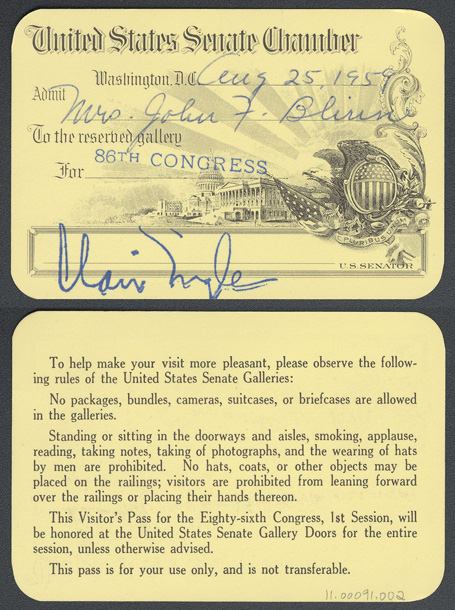 United States Senate Chamber
Washington, D.C. Aug 25, 1959
Admit Mrs. John F. Blinn
To the reserved gallery
For 86TH CONGRESS
E PLURIBUS UNUM
Clair Engle
U.S. SENATOR
To help make your visit more pleasant, please observe the follow-
ing rules of the United States Senate Galleries:
No packages, bundles, cameras, suitcases, or briefcases are allowed
in the galleries.
Standing or sitting in the doorways and aisles, smoking, applause,
reading, taking notes, taking of photographs, and the wearing of hats
by men are prohibited. No hats, coats, or other objects may be
placed on the railings; visitors are prohibited from leaning forward
over the railings or placing their hands thereon.
This Visitor's Pass for the Eighty-sixth Congress, 1st Session, will
be honored at the United States Senate Gallery Doors for the entire
session, unless otherwise advised.
This pass is for your use only, and is not transferable.
11.00091.002